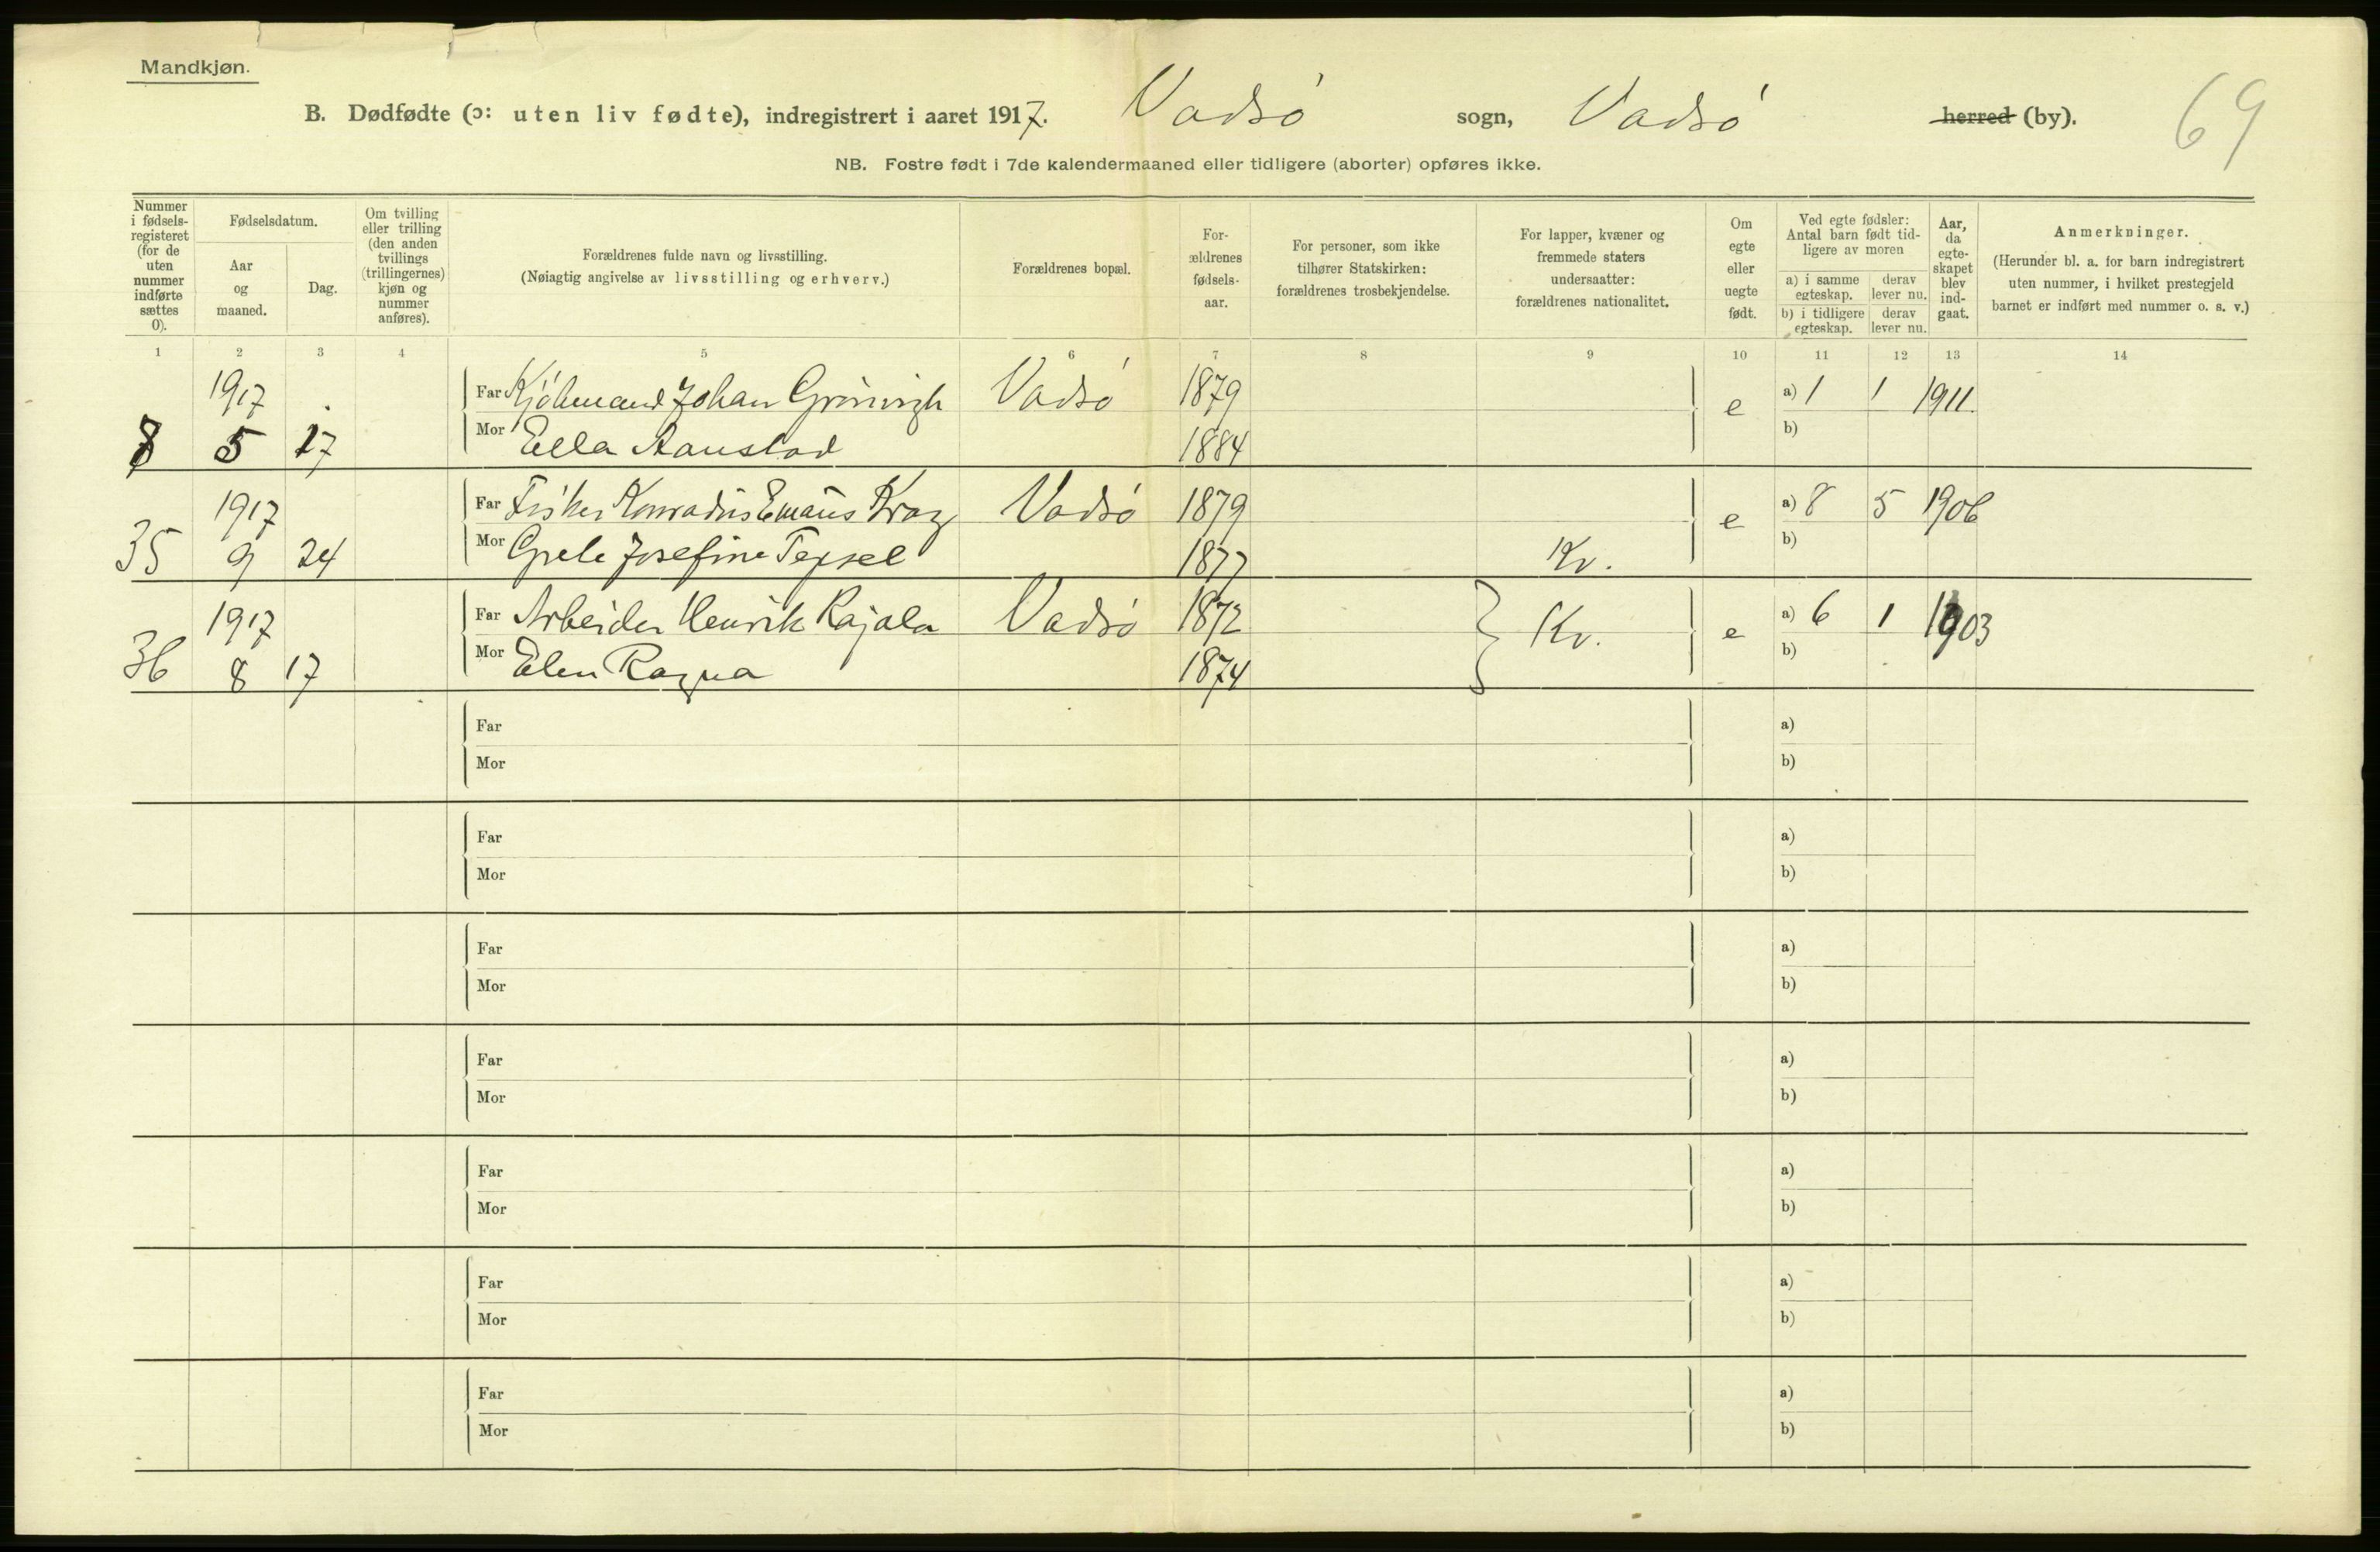 Mandkjøn.
B. Dødfødte (ɔ: uten liv fødte), indregistrert i aaret 1917. Vadsö sogn, Vadsö herred (by).
69
NB. Fostre født i 7de kalendermaaned eller tidligere (aborter) opføres ikke.
Nummer i fødsels-registeret (for de uten nummer indførte sættes 0).
Fødselsdatum.
Aar og maaned.
Dag.
Om tvilling eller trilling (den anden tvillings (trillingernes) kjøn og nummer anføres).
Forældrenes fulde navn og livsstilling.
(Nøiagtig angivelse av livsstilling og erhverv.)
Forældrenes bopæl.
For-ældrenes fødsels-aar.
For personer, som ikke tilhører Statskirken: forældrenes trosbekjendelse.
For lapper, kvæner og fremmede staters undersaatter: forældrenes nationalitet.
Om egte eller uegte født.
Ved egte fødsler: Antal barn født tid-ligere av moren
a) i samme egteskap. derav lever nu.
b) i tidligere egteskap. derav lever nu.
Aar, da egte-skapet blev ind-gaat.
Anmerkninger.
(Herunder bl. a. for barn indregistrert uten nummer, i hvilket prestegjeld barnet er indført med nummer o. s. v.)
1 2 3 4 5 6 7 8 9 10 11 12 13 14
1917 Far Johan Vadsö 1879 e a) 1 1 1911
8 5 17 Mor Ella Aanstad 1884 b)
1917 Far Fisker Konradus Vadsö 1879 e a) 8 5 1906
35 9 24 Mor Grete Josefine 1877 Kv. b)
1917 Far Arbeider Henrik Rajala Vadsö 1872 Kv. e a) 6 1 1903
36 8 17 Mor Elen Ragna 1874 b)
Far a)
Mor b)
Far a)
Mor b)
Far a)
Mor b)
Far a)
Mor b)
Far a)
Mor b)
Far a)
Mor b)
Far a)
Mor b)